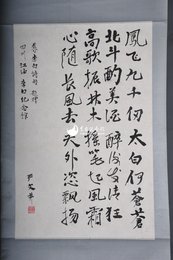 凤飞九千仞太白何苍苍
北斗酌美酒醉后发清狂
高歌振林木摇笔起风霜
心随长风去天外恣飘扬
集李白诗句敬赠
四川江油李白纪念馆